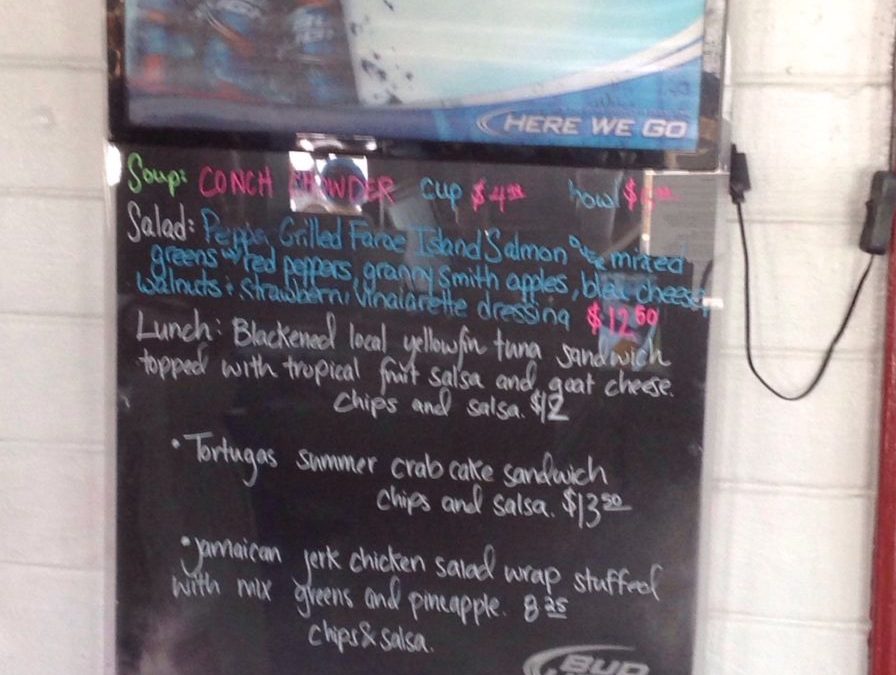 HERE WE GO
Soup: CONCH CHOWDER cup $4 bowl $
Salad: Grilled Faroe Island Salmon over mixed
greens w/ red peppers, granny Smith apples, bleu cheese,
walnuts & Strawberry Vinaiarette dressing $12 50
Lunch: Blackened local yellowfin tuna sandwich
topped with tropical fruit salsa and goat cheese.
chips and salsa. $12
• Tortugas summer crab cake sandwich
chips and salsa. $13 50
• Jamaican jerk chicken salad wrap stuffed
with mix greens and pineapple. 8 25
chips & salsa.
BUD